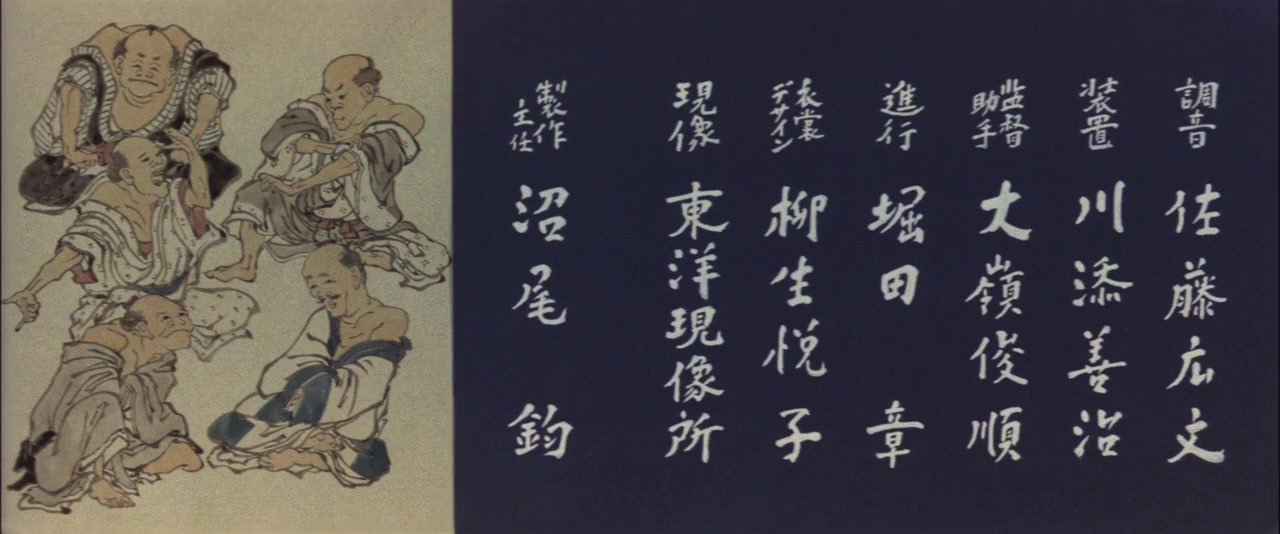 調音
佐藤広文
装置
川添善治
監督
助手
大嶺俊順
進行
堀田章
衣裳
デザイン
柳生悦子
現像
東洋現像所
製作
主任
沼尾鈞